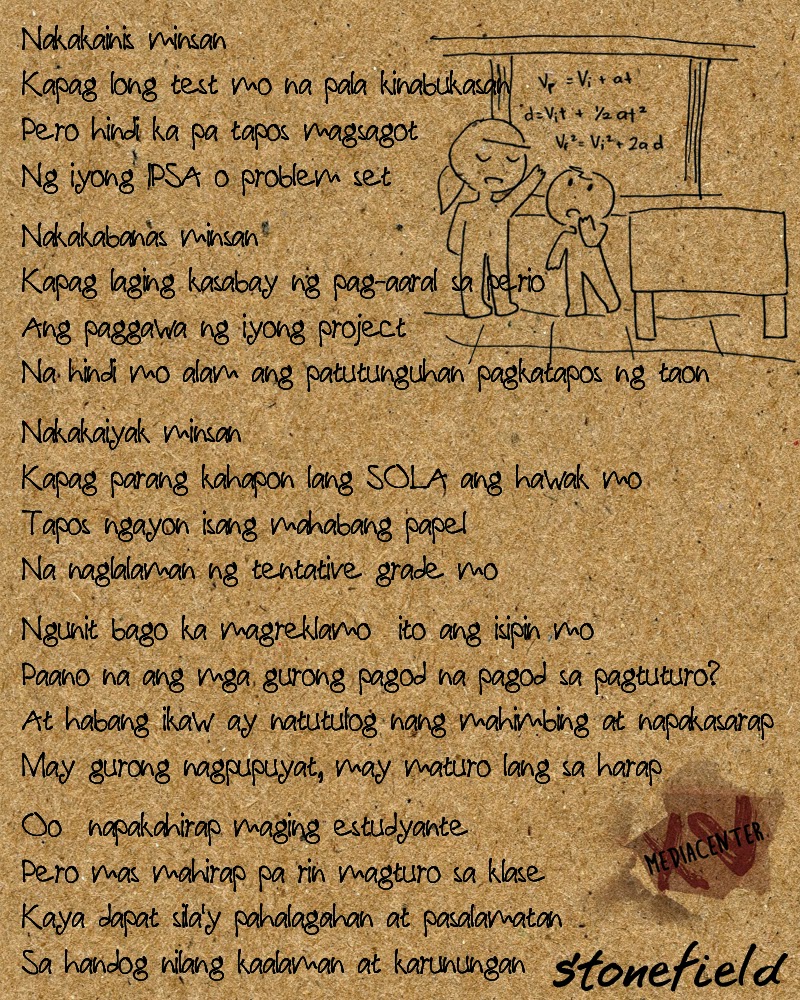 Nakakainis minsan
Kapag long test mo na pala kinabukasan
Pero hindi ka pa tapos magsagot
Ng iyong IPSA o problem set
Vf = Vi + at
d=Vit + 1/2 at²
Vf²= Vi²+ 2a d
Nakakabanas minsan
Kapag laging kasabay ng pag-aaral sa perio
Ang paggawa ng iyong project
Na hindi mo alam ang patutunguhan pagkatapos ng taon
Nakakaiyak minsan
Kapag parang kahapon lang SOLA ang hawak mo
Tapos ngayon isang mahabang papel
Na naglalaman ng tentative grade mo
Ngunit bago ka magreklamo ito ang isipin mo
Paano na ang mga gurong pagod na pagod sa pagtuturo?
At habang ikaw ay natutulog nang mahimbing at napakasarap
May gurong nagpupuyat, may maturo lang sa harap
Oo napakahirap maging estudyante
Pero mas mahirap pa rin magturo sa klase
Kaya dapat sila'y pahalagahan at pasalamatan
Sa handog nilang kaalaman at karunungan
MEDIACENTER
stonefield